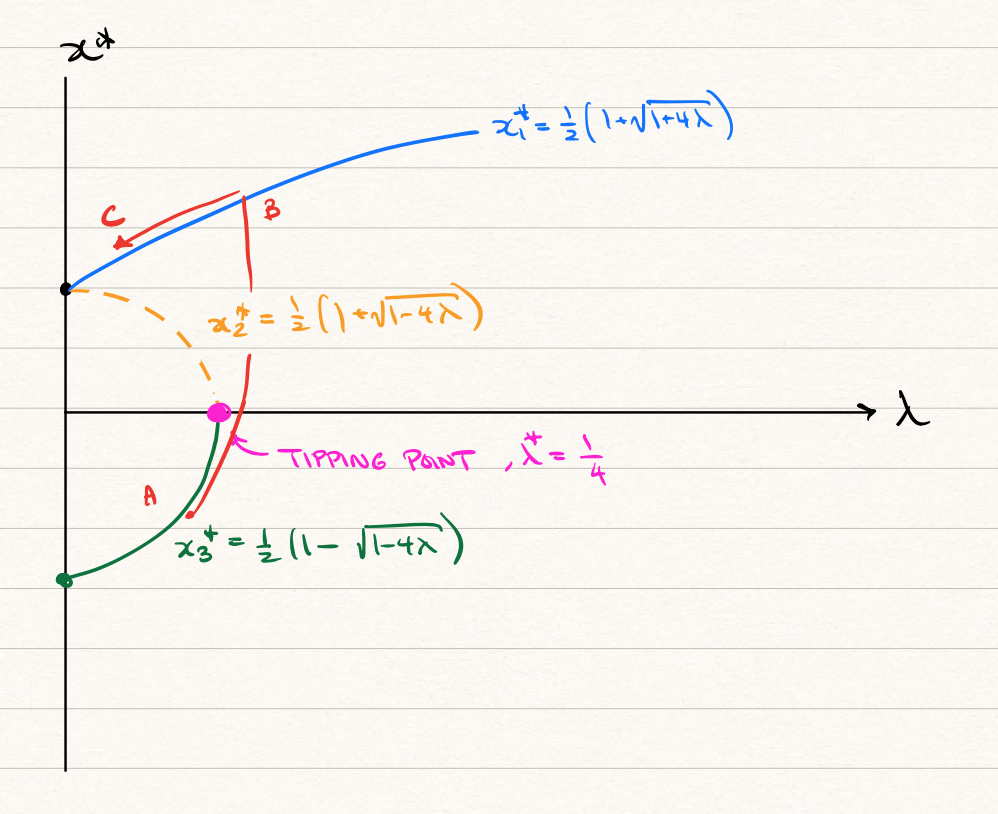 x*
x₁* = 1/2 (1+√(1+4λ))
C
B
x₂* = 1/2 (1+√(1-4λ))
λ
TIPPING POINT , λ* = 1/4
A
x₃* = 1/2 (1-√(1-4λ))